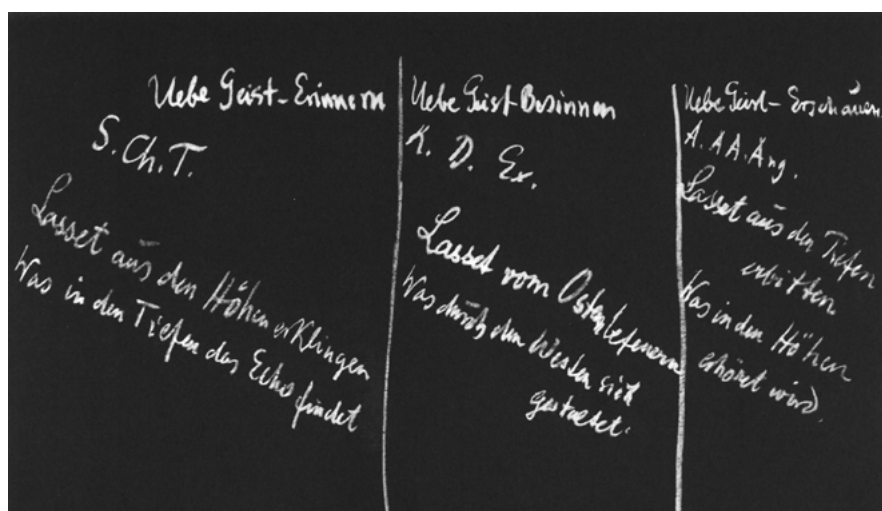 Uebe Geist-Erinnern
S. Ch. T.
Lasset aus den Höhen erklingen
Was in den Tiefen das Echo findet
Uebe Geist-Besinnen
K. D. Ex.
Lasset vom Osten befeuern
Was durch den Westen sich
gestaltet.
Uebe Geist-Erschauen
A. AA. Ang.
Lasset aus den Tiefen
erbitten
Was in den Höhen
erhöret wird.